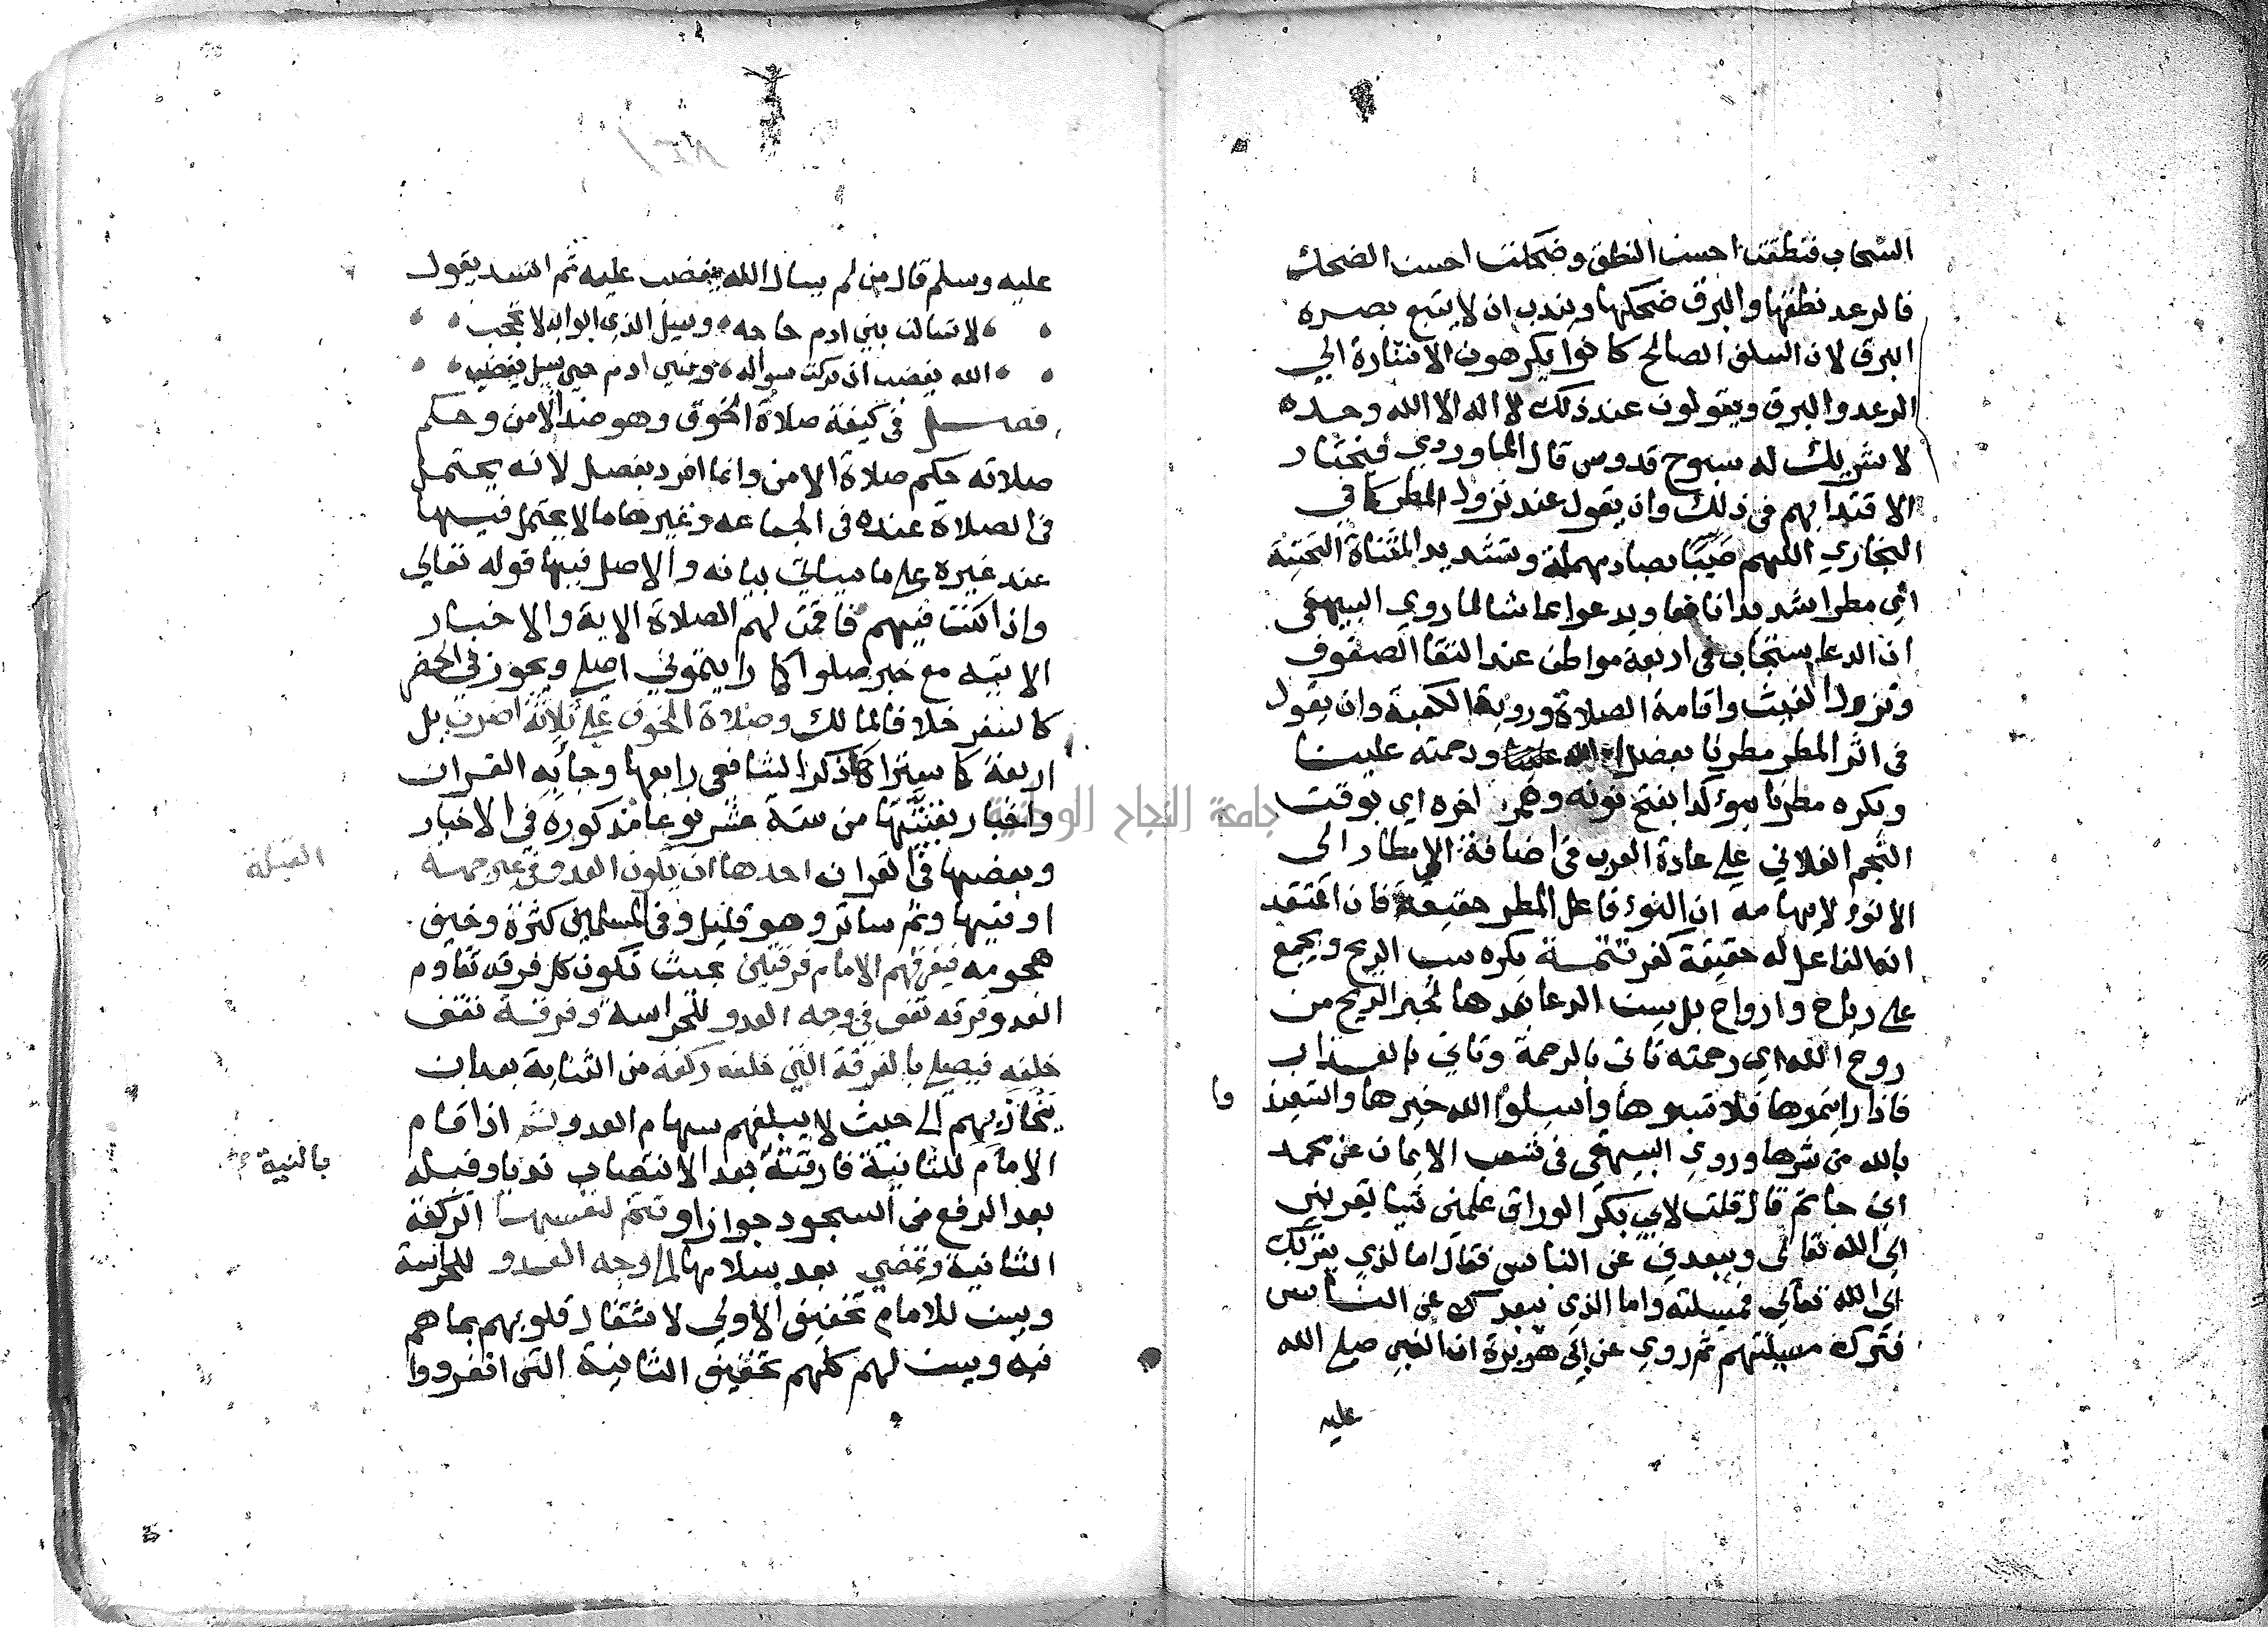 السحاب فنطقت احسن النطق وضحكت احسن الضحك
فالرعد نطقها والبرق ضحكها ويندب ان لا يتبع بصره
البرق لان السلف الصالح كانوا يكرهون الاشارة الي
الرعد والبرق ويقولون عند ذلك لا اله الا الله وحده
لا شريك له سبوح قدوس قال الماوردي فيختار
الاقتدا بهم في ذلك وان يقول عند نزول المطر كما في
البخاري اللهم صيبا بصاد مهملة وتشديد المثناة التحتية
اي مطرا شديدا نافعا ويدعوا بما شا لما روي البيهقي
ان الدعا يستجاب في اربعة مواطن عند التقا الصفوف
ونزول الغيث واقامة الصلاة وروية الكعبة وان يقول
في اثر المطر مطرنا بفضل الله علينا ورحمته علينا
ويكره مطرنا بنوء كذا بفتح نونه وهمز اخره اي بوقت
النجم الفلاني علي عادة العرب في اضافة الامطار الي
الانوء لايهامه ان النوء فاعل المطر حقيقة فان اعتقد
انه الفاعل له حقيقة كفر تتمة يكره سب الريح ويجمع
علي رياح وارواح بل يسن الدعا عندها لخبر الريح من
روح الله اي رحمته تاتي بالرحمة وتاتي بالعذاب
فاذا رايتموها فلا تسبوها واسيلوا الله خيرها واستعيذ وا
بالله من شرها وروي البيهقي في شعب الايمان عن محمد
ابن حاتم قال قلت لابي بكر الوراق علمني شيا يقربني
الي الله تعالي ويبعدني عن الناس فقال اما الذي يقربك
الي الله تعالي فمسيلته واما الذي يبعدك عن الناس
فترك مسيلتهم ثم روي عن ابي هريرة ان النبي صلي الله
عليه
عليه وسلم قال من لم يسال الله يغضب عليه ثم انشد يقول
لا تسالن بني ادم حاجه وسيل الذي ابوابه لا تحجب
الله يغضب ان تركت سواله وبني ادم حين يسيل يغضب
فصل في كيفة صلاة الخوف وهو ضد الامن وحكم
صلاته حكم صلاة الامن وانما افرد بفصل لانه يحتمل
في الصلاة عنده في الجماعه وغيرها ما لا يحتمل فيها
عند غيره علي ما سياتي بيانه والاصل فيها قوله تعالي
واذا كنت فيهم فاقمت لهم الصلاة الاية والاخبار
الاتيه مع خبر صلوا كما رايتموني اصلي ويجوز في الحضر
كالسفر خلافا لمالك وصلاة الخوف علي ثلاثة اضرب بل
اربعة كما ستراه ذكر الشافعي رابعها وجا به القران
واختار بقيتها من ستة عشر نوعا مذكورة في الاخبار
وبعضها في القران احدها ان يكون العدو في غير جهة
القبلة
او فيها وثم ساتر وهو قليل وفي المسلمين كثرة وخيف
هجومه فيفرقهم الامام فرقتين بحيث تكون كل فرقه تقاوم
العدو فرقه تقف في وجه العدو للحراسة وفرقة تقف
خلفه فيصلي بالفرقة التي خلفه ركعة من الثنائية بعد ان
ينحاز بهم الي حيث لا يبلغهم سهام العدو ثم اذا قام
الامام للثانية فارقته بعد الانتصاب ندبا وقبله
بالنية
بعد الرفع من السجود جوازا وتتم لنفسها الركعة
الثانية وتمضي بعد سلامها الي وجه العدو للحراسة
ويسن للامام تخفيف الاولي لاشتغال قلوبهم بما هم
فيه ويسن لهم كلهم تخفيف الثانية التي انفردوا
جامعة النجاح الوطنية